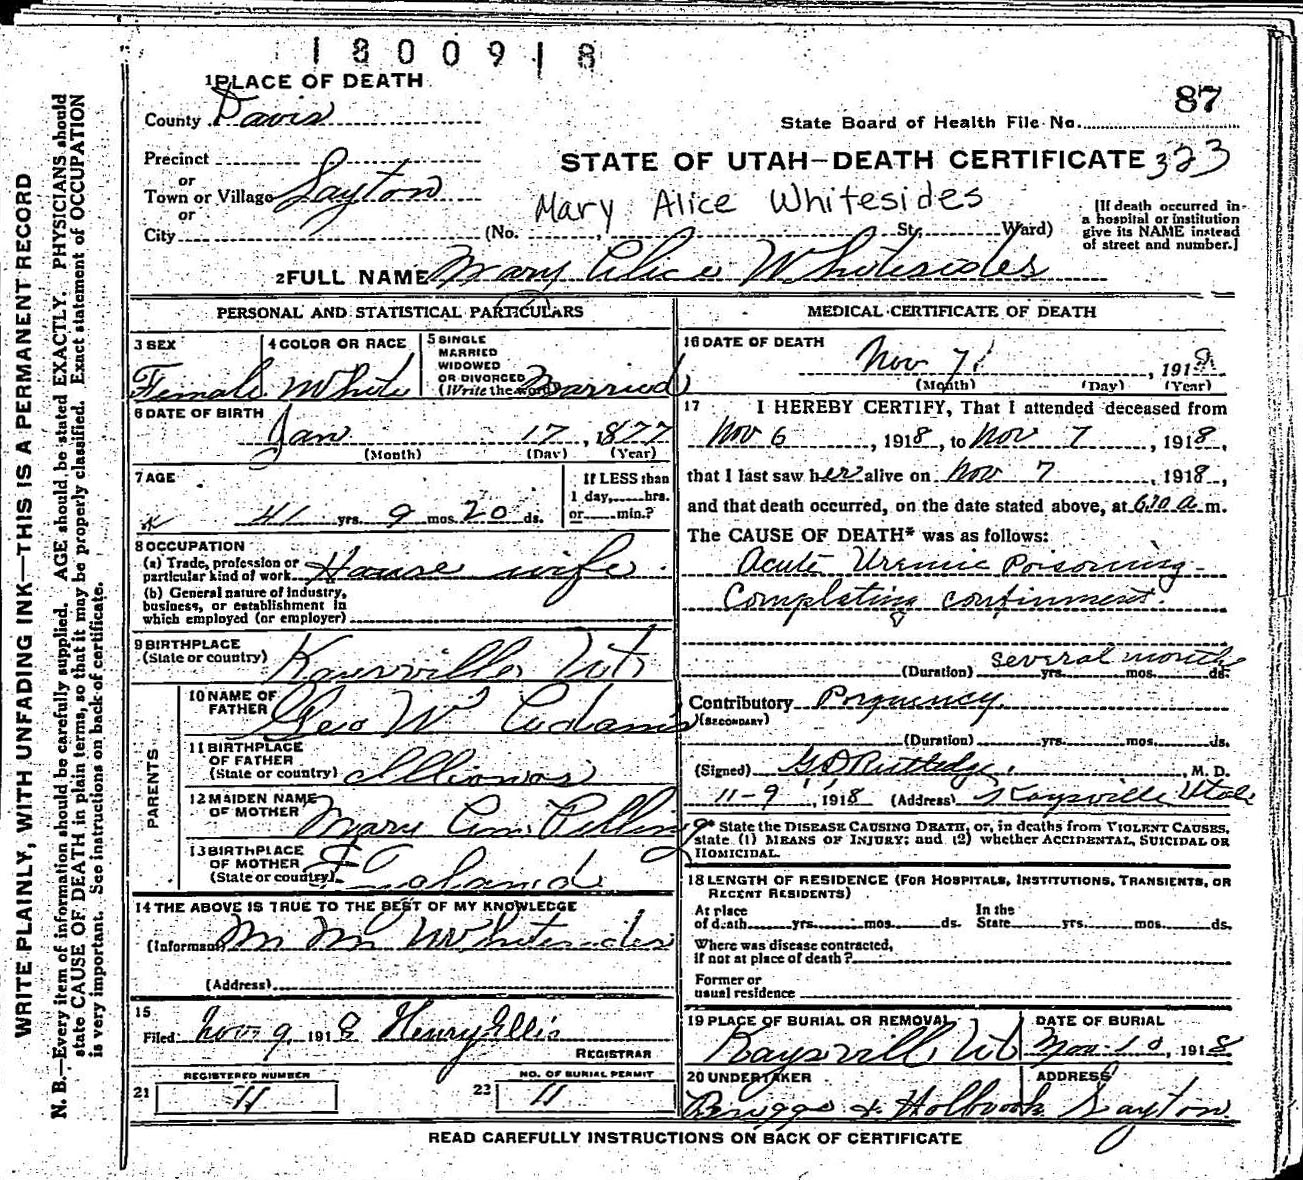 1800918
1 PLACE OF DEATH
87
County Davis
State Board of Health File No.
Precinct
STATE OF UTAH—DEATH CERTIFICATE 323
or
Town or Village Layton
Mary Alice Whitesides
or
City (No. , St., Ward)
[If death occurred in a hospital or institution give its NAME instead of street and number.]
2 FULL NAME Mary Alice Whitesides
PERSONAL AND STATISTICAL PARTICULARS
3 SEX
Female
4 COLOR OR RACE
White
5 SINGLE
MARRIED
WIDOWED
OR DIVORCED
(Write the word) Married
6 DATE OF BIRTH
Jan 17, 1877
(Month) (Day) (Year)
7 AGE
If LESS than
1 day, hrs.
or min.?
41 yrs. 9 mos. 20 ds.
8 OCCUPATION
(a) Trade, profession or
particular kind of work House wife
(b) General nature of industry,
business, or establishment in
which employed (or employer)
9 BIRTHPLACE
(State or country) Kaysville Ut
PARENTS
10 NAME OF
FATHER Geo W Adams
11 BIRTHPLACE
OF FATHER
(State or country) Illionos
12 MAIDEN NAME
OF MOTHER Mary Ann Pilling
13 BIRTHPLACE
OF MOTHER
(State or country)
14 THE ABOVE IS TRUE TO THE BEST OF MY KNOWLEDGE
(Informant) Whitesides
(Address)
15
Filed Nov 9, 1918 Henry Ellis
REGISTRAR
REGISTERED NUMBER
21 11
NO. OF BURIAL PERMIT
23 11
MEDICAL CERTIFICATE OF DEATH
16 DATE OF DEATH
Nov 7, 1918
(Month) (Day) (Year)
17 I HEREBY CERTIFY, That I attended deceased from
Nov 6, 1918, to Nov 7, 1918,
that I last saw her alive on Nov 7, 1918,
and that death occurred, on the date stated above, at 6:10 a m.
The CAUSE OF DEATH* was as follows:
Acute Uremic Poisoning
Complating confinment
(Duration) several months yrs. mos. ds.
Contributory Prgnuncy
(SECONDARY)
(Duration) yrs. mos. ds.
(Signed) G D Rutledge, M. D.
11-9, 1918 (Address) Kaysville Utah
* State the DISEASE CAUSING DEATH, or, in deaths from VIOLENT CAUSES,
state (1) MEANS OF INJURY; and (2) whether ACCIDENTAL, SUICIDAL OR
HOMICIDAL.
18 LENGTH OF RESIDENCE (FOR HOSPITALS, INSTITUTIONS, TRANSIENTS, OR
RECENT RESIDENTS)
At place
of death yrs. mos. ds.
In the
State yrs. mos. ds.
Where was disease contracted,
if not at place of death?
Former or
usual residence
19 PLACE OF BURIAL OR REMOVAL
Kaysville Ut
DATE OF BURIAL
Nov. 10, 1918
20 UNDERTAKER
Briggs & Holbrook
ADDRESS
Layton
READ CAREFULLY INSTRUCTIONS ON BACK OF CERTIFICATE
WRITE PLAINLY, WITH UNFADING INK—THIS IS A PERMANENT RECORD
N. B.—Every item of information should be carefully supplied. AGE should be stated EXACTLY. PHYSICIANS should
state CAUSE OF DEATH in plain terms, so that it may be properly classified. Exact statement of OCCUPATION
is very important. See instructions on back of certificate.